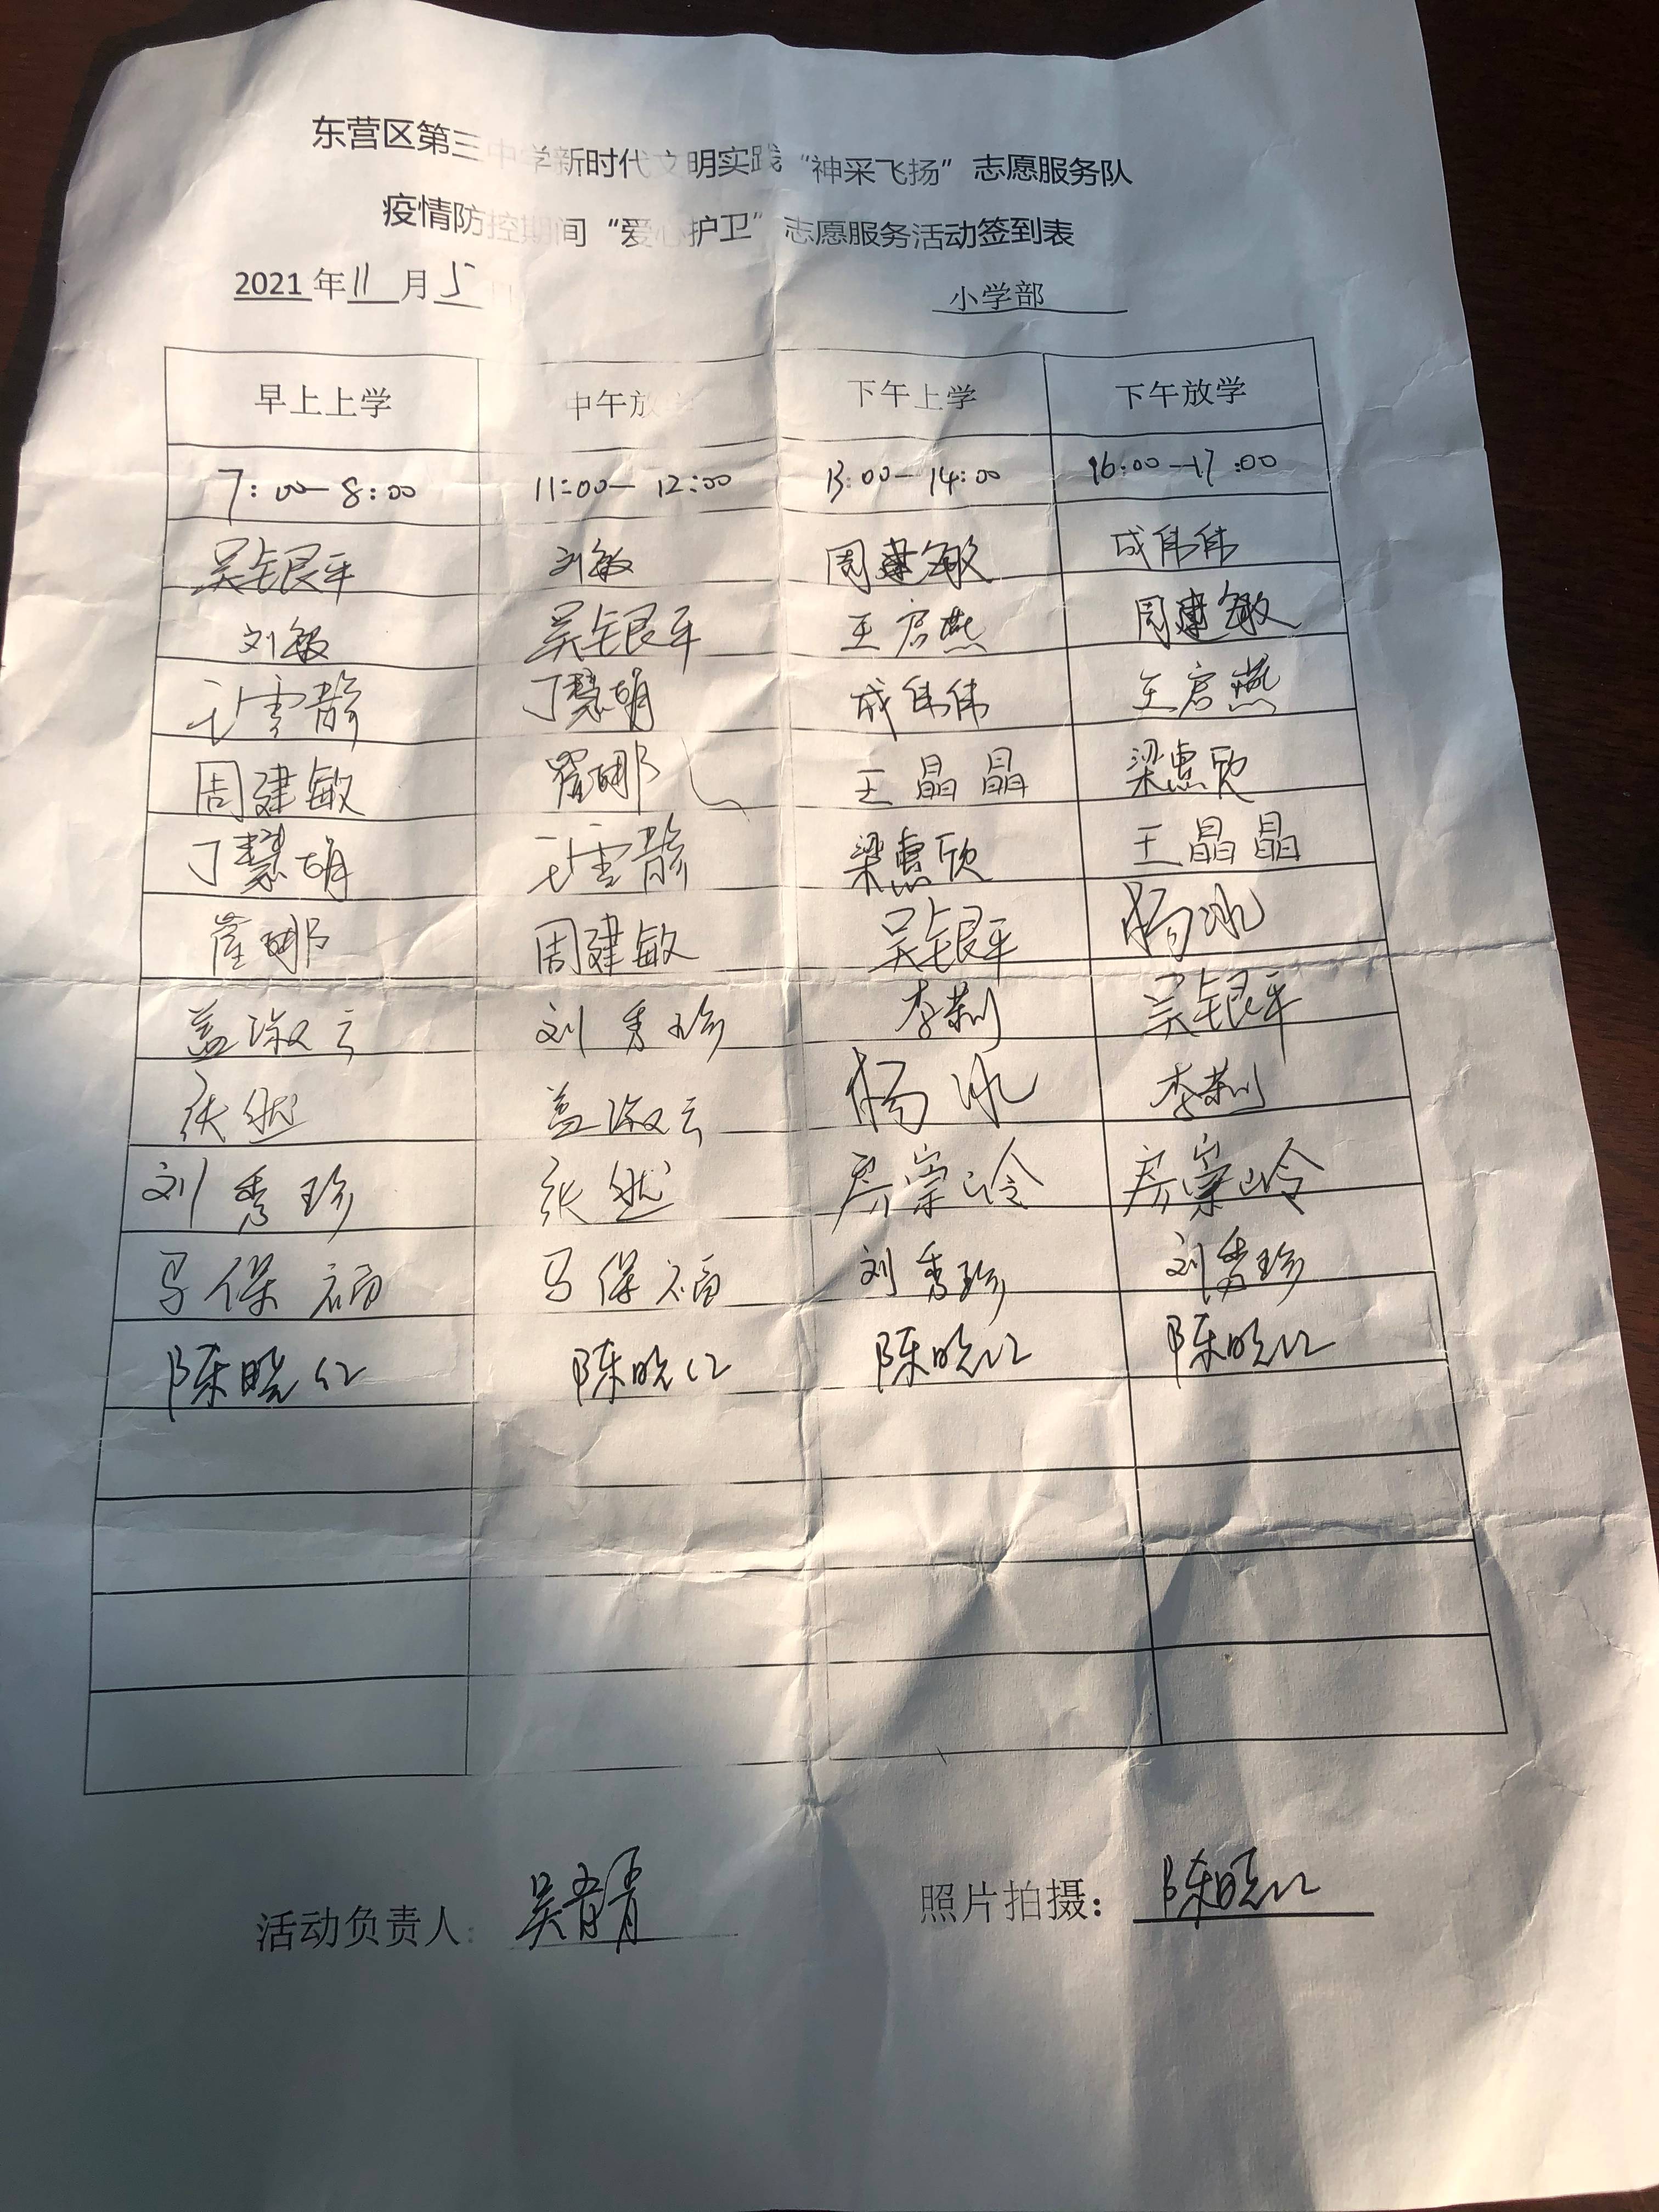 东营区第三中学新时代文明实践“神采飞扬”志愿服务队
疫情防控期间“爱心护卫”志愿服务活动签到表
2021年11月5日 小学部
早上上学 中午放学 下午上学 下午放学
7:00-8:00 11:00-12:00 13:00-14:00 16:00-17:00
吴银平 刘敏 周建敏 成伟伟
刘敏 吴银平 王启燕 周建敏
丁慧娟 成伟伟 王启燕
周建敏 翟娜 王晶晶 梁惠欣
丁慧娟 梁惠欣 王晶晶
翟娜 周建敏 吴银平 杨冰
盖淑云 刘秀珍 李荆 吴银平
张然 盖淑云 杨冰 李荆
刘秀珍 张然 房崇岭 房崇岭
马保福 马保福 刘秀珍 刘秀珍
陈晓红 陈晓红 陈晓红 陈晓红
活动负责人: 吴青青 照片拍摄: 陈晓红